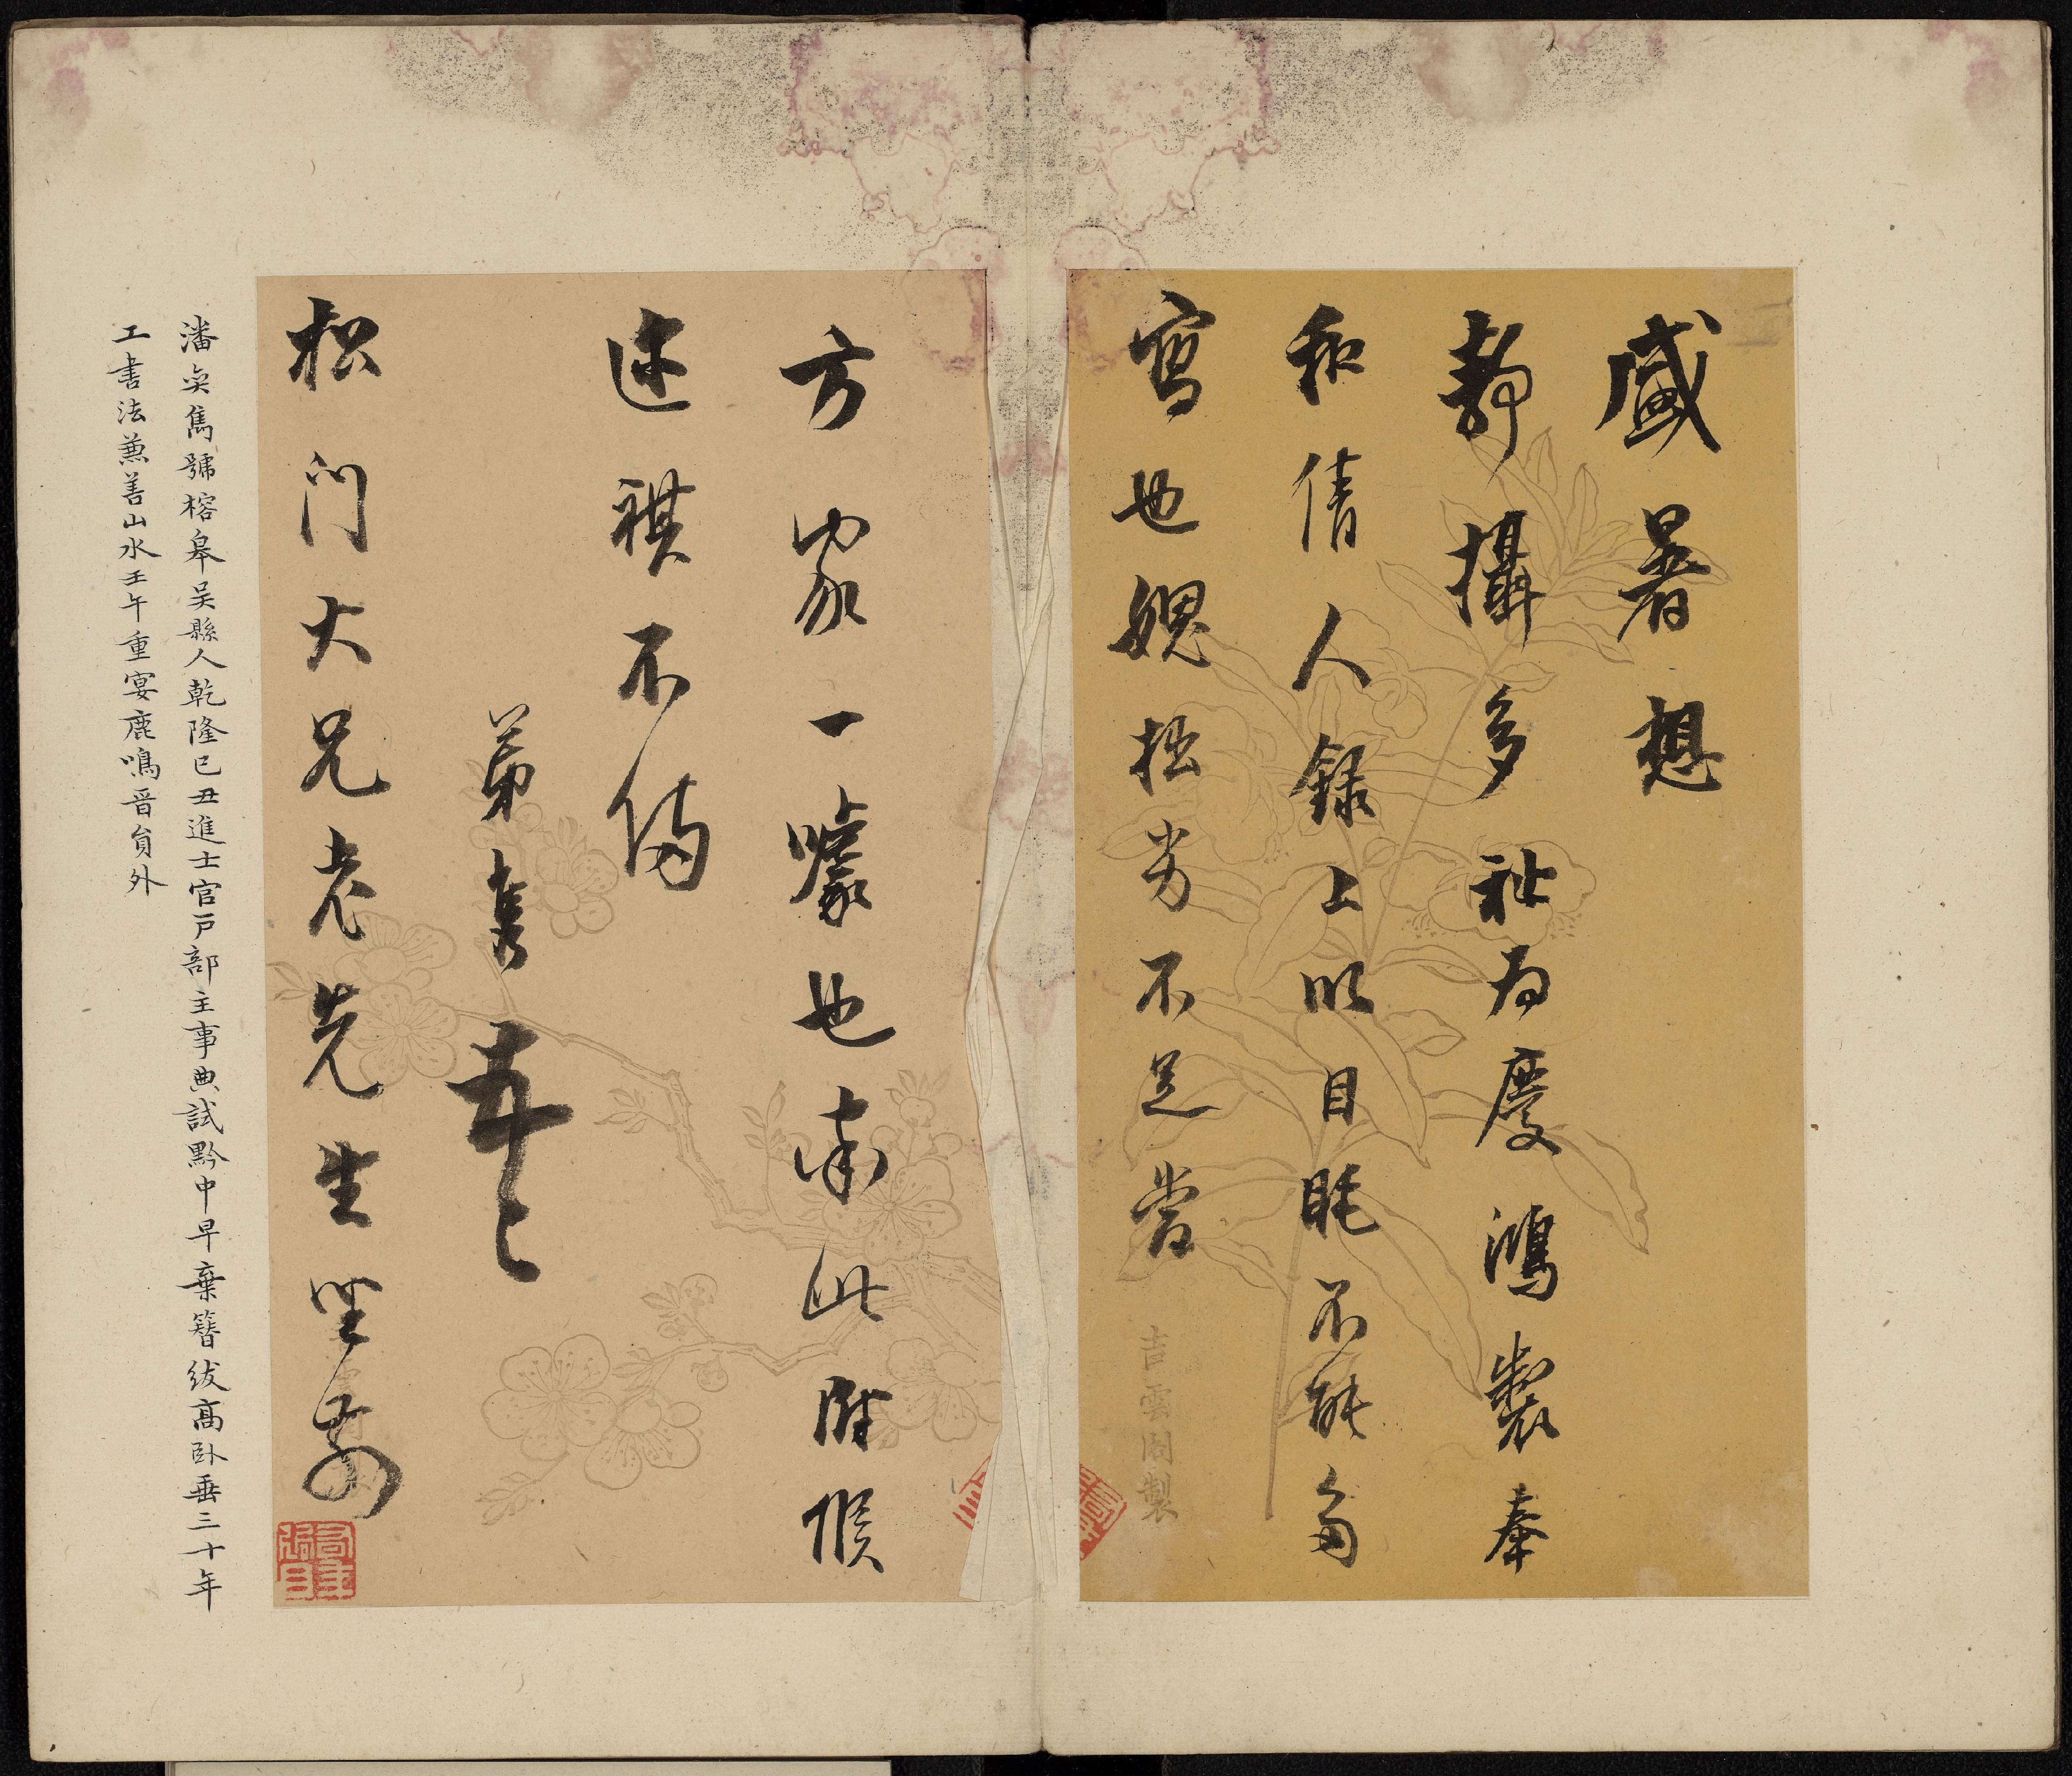 盛暑想
靜攝多祉為慶鴻製奉
和倩人錄上以目眊不能多
寫也媿拙劣不足當
吉雲閣製
方家一噱也肅此附候
近祺不備
弟奕雋
松門大兄老先生坐前
潘奕雋號榕皋吳縣人乾隆己丑進士官戶部主事典試黔中早棄簪紱高臥垂三十年
工書法兼善山水壬午重宴鹿鳴晉員外